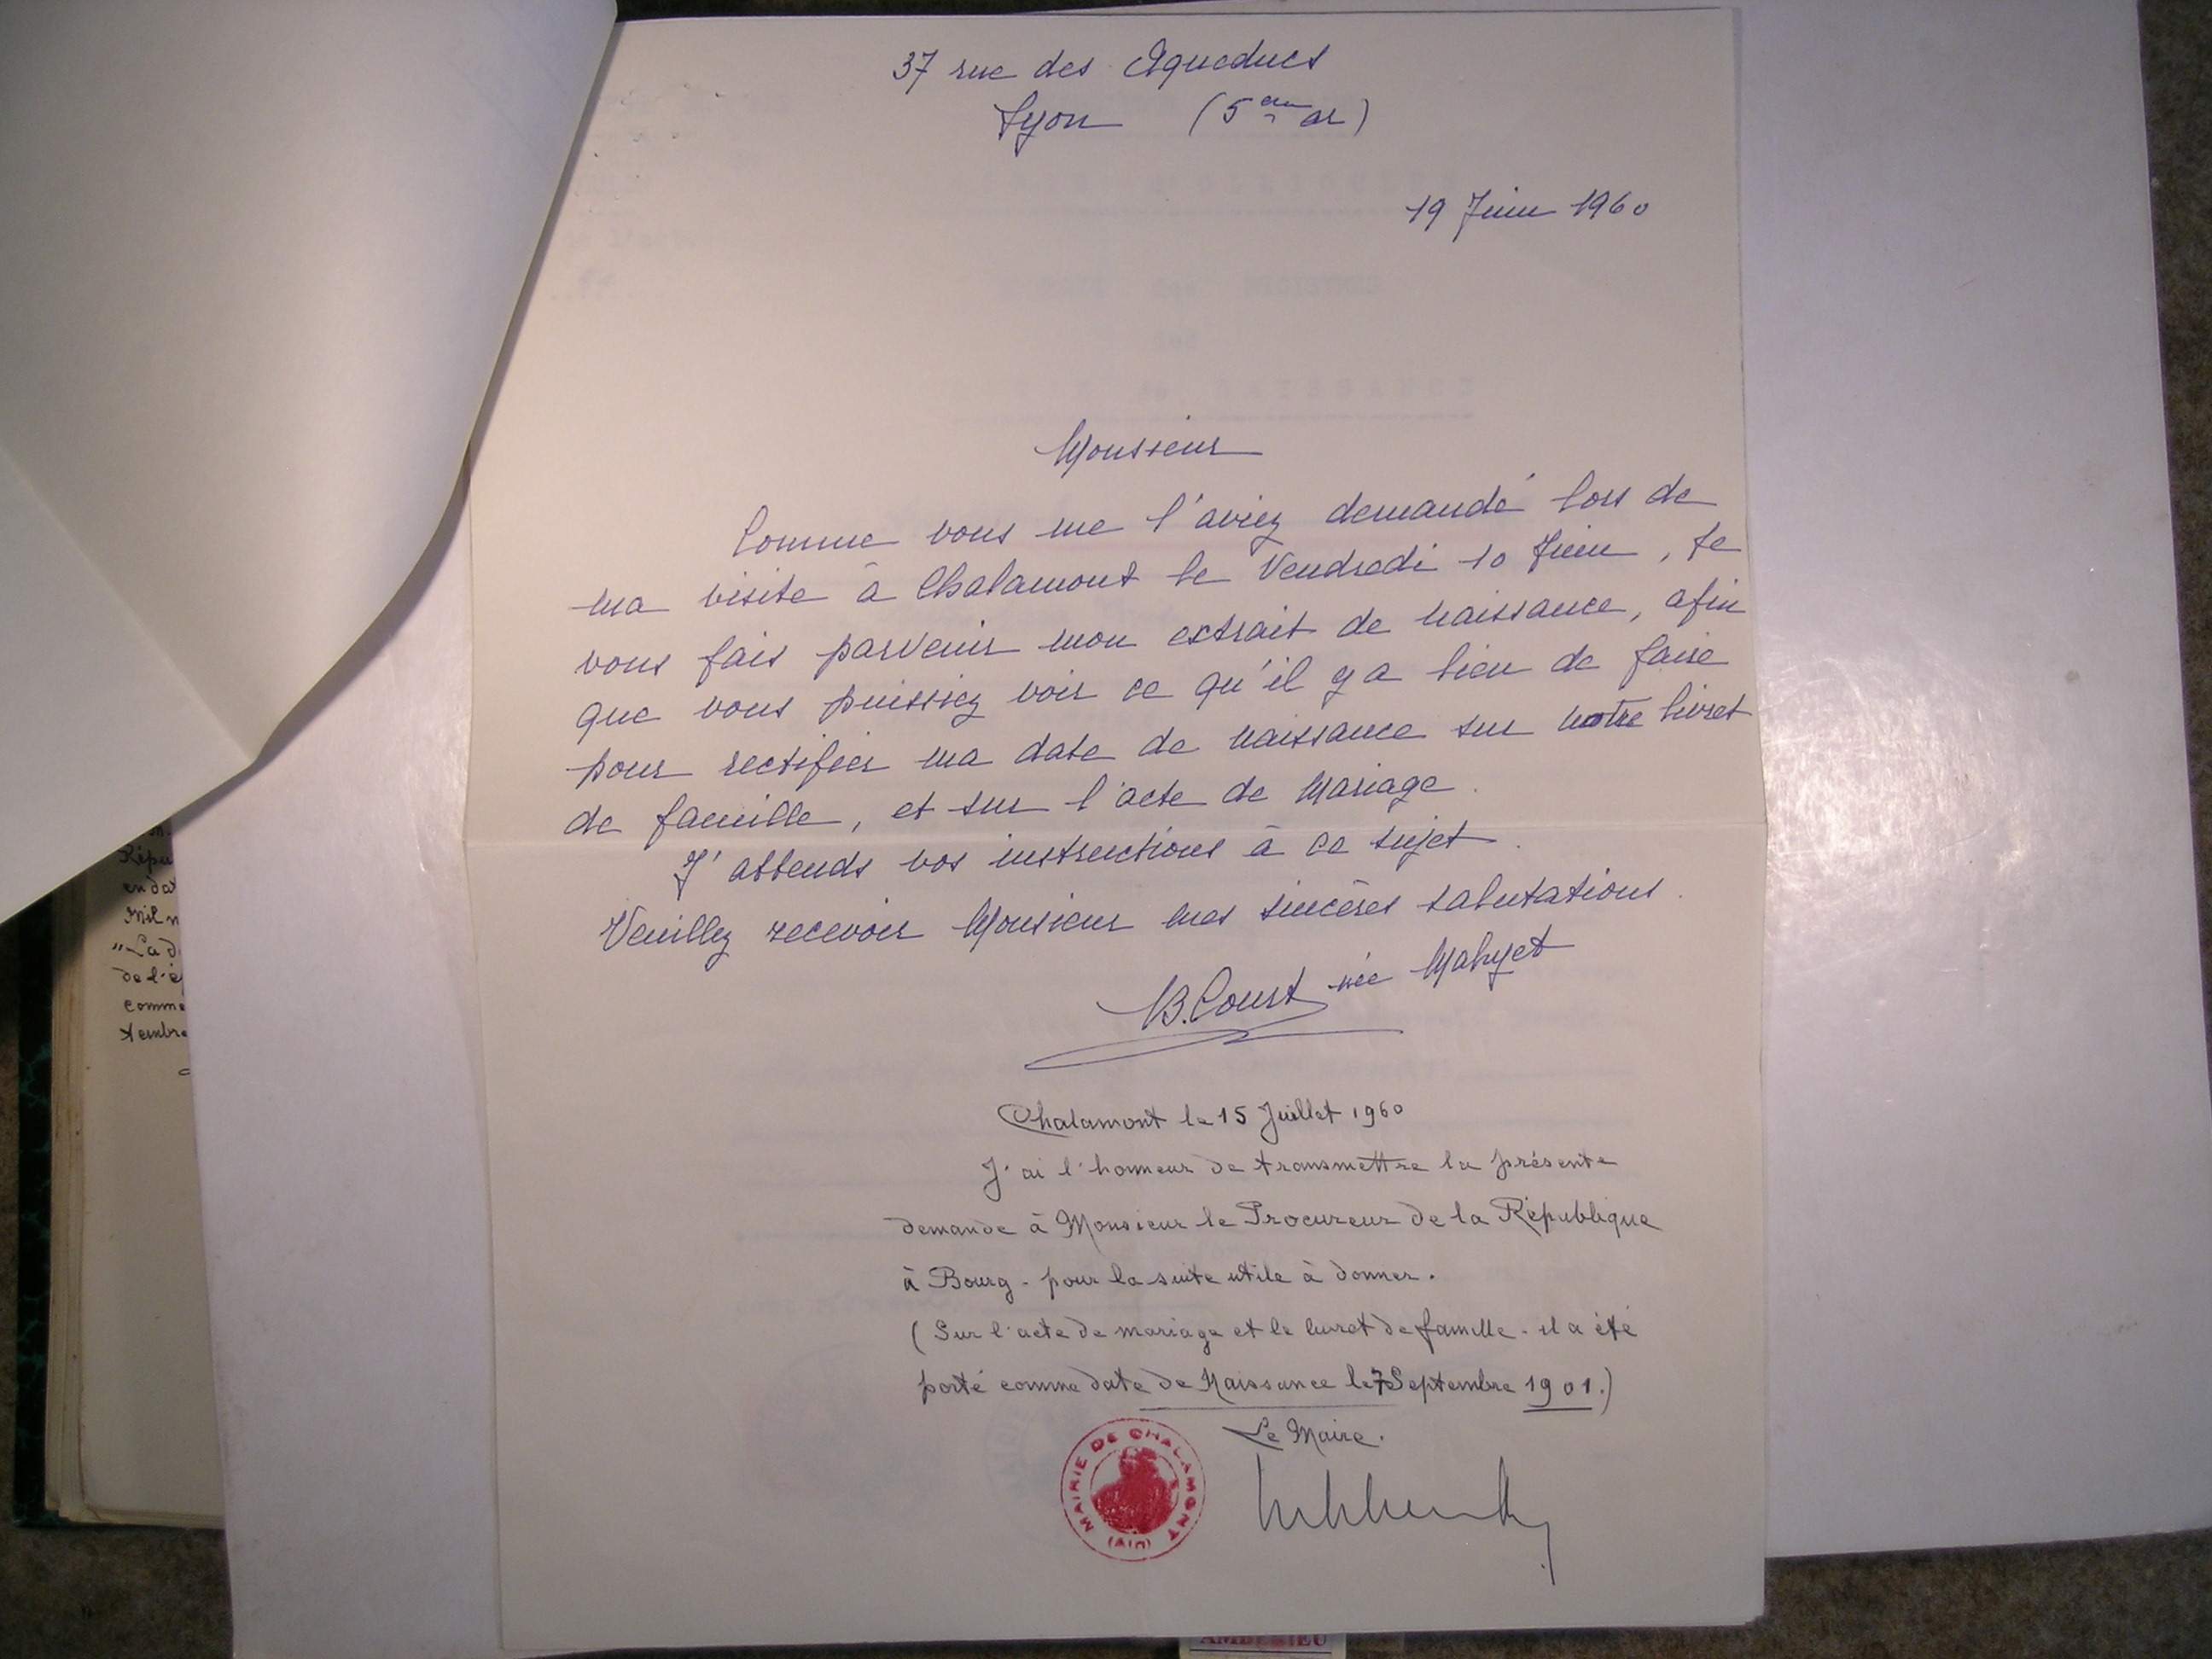 37 rue des Aqueducs
Lyon (5ème ar)
19 Juin 1960
Monsieur
Comme vous me l'aviez demandé lors de
ma visite à Chalamont le Vendredi 10 Juin, je
vous fais parvenir mon extrait de naissance, afin
que vous puissiez voir ce qu'il y a lieu de faire
pour rectifier ma date de naissance sur notre livret
de famille, et sur l'acte de Mariage.
J'attends vos instructions à ce sujet.
Veuillez recevoir Monsieur mes sincères salutations.
B. Court née Mahyet
Chalamont le 15 Juillet 1960
J'ai l'honneur de transmettre la présente
demande à Monsieur le Procureur de la République
à Bourg - pour la suite utile à donner.
(Sur l'acte de mariage et le livret de famille - il a été
porté comme date de Naissance le 7 Septembre 1901.)
Le Maire.
MAIRIE DE CHALAMONT
(AIN)
Répu
en dat
Mil n
"La d
de l'é
comme
tembre